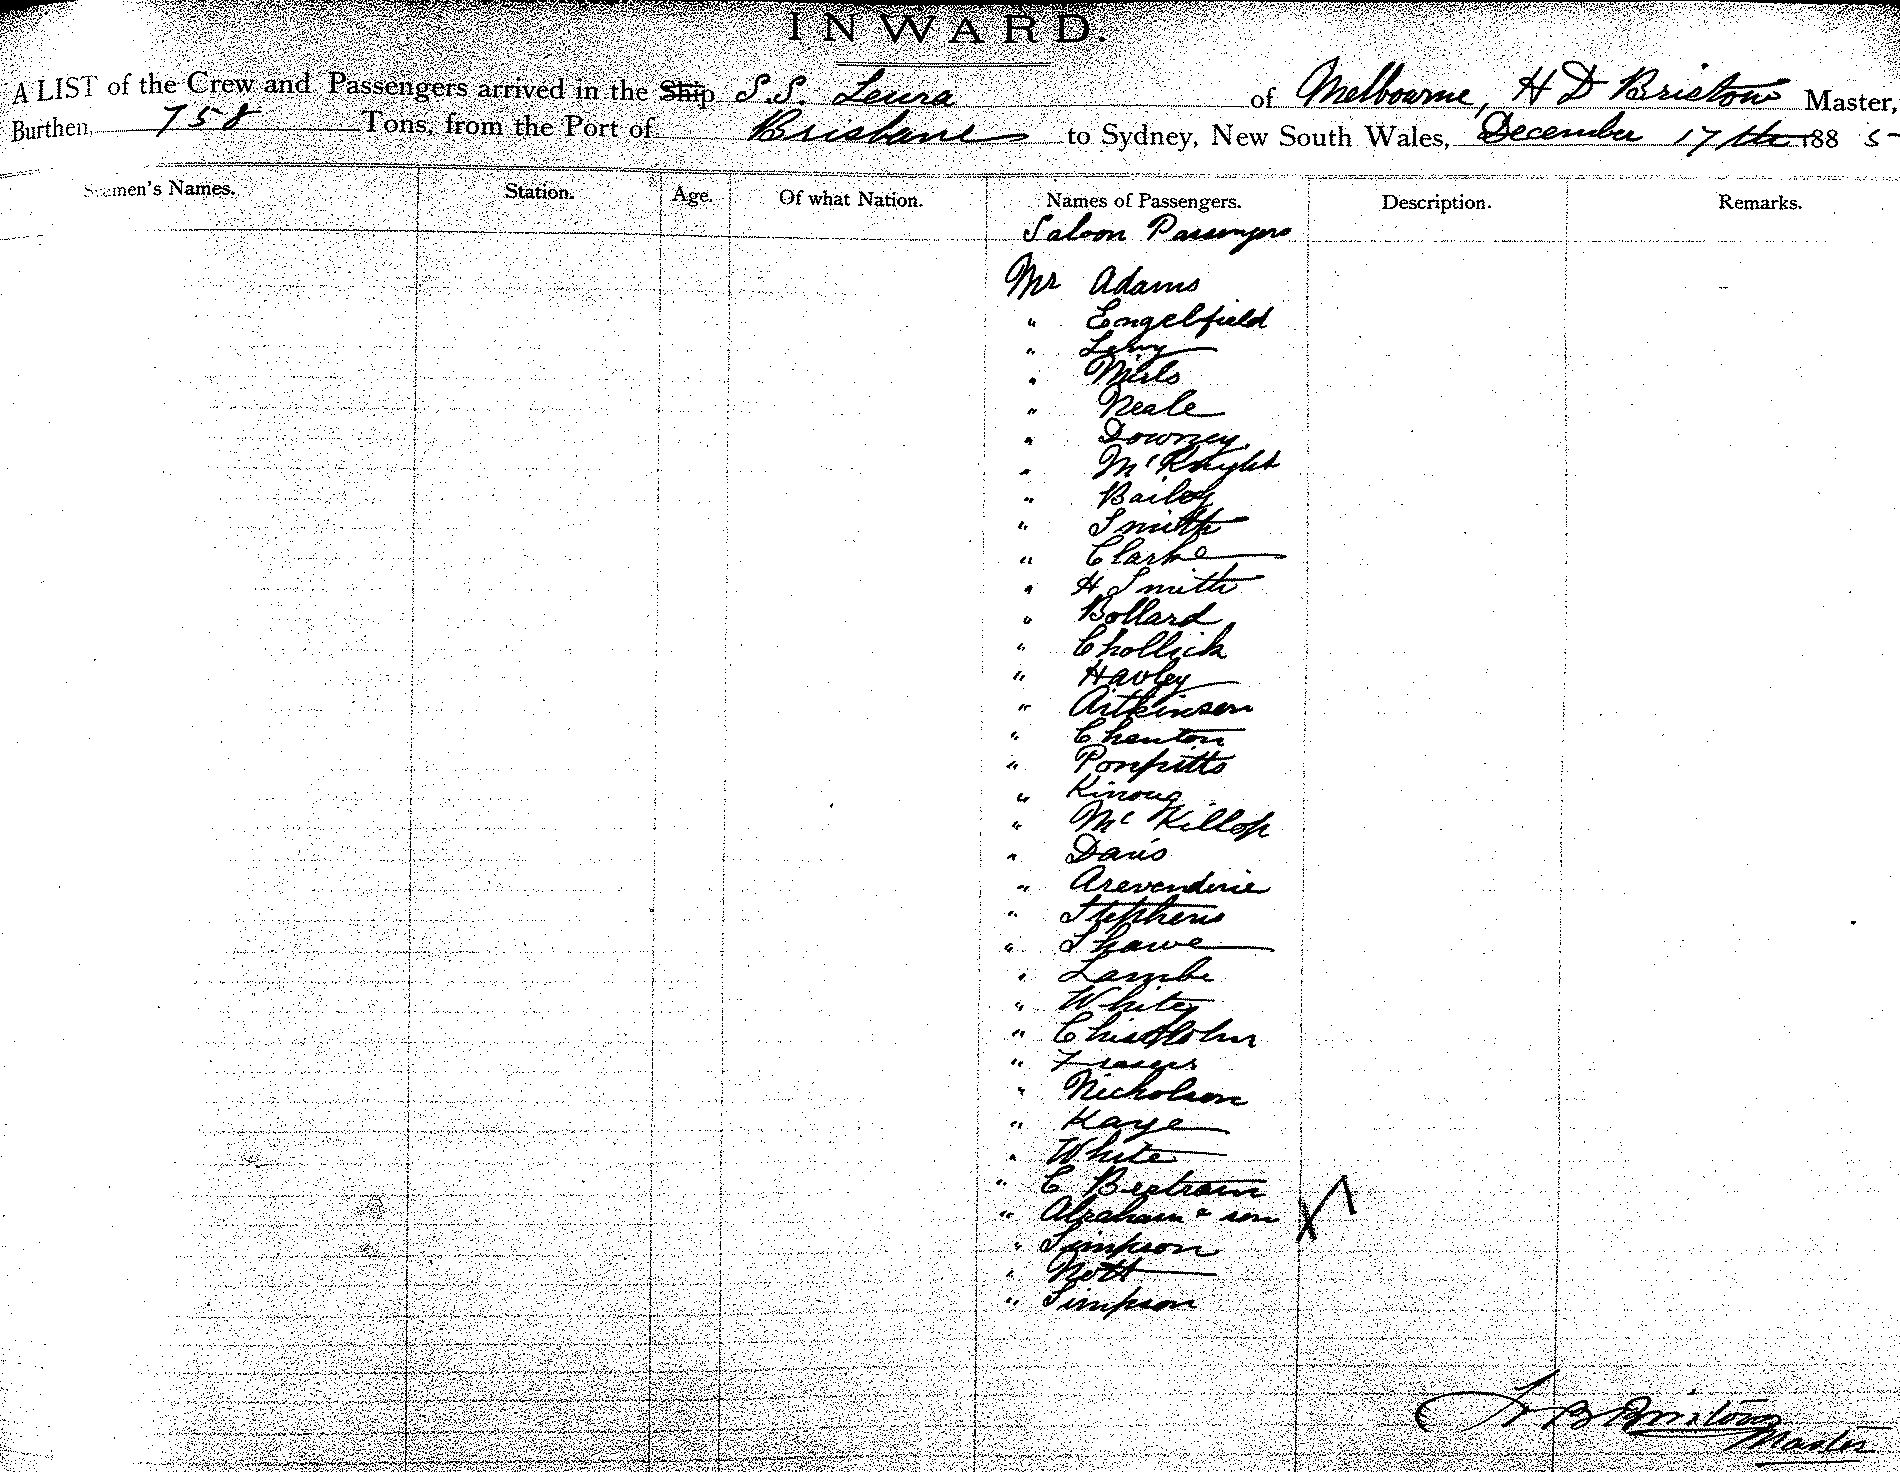 INWARD.
A LIST of the Crew and Passengers arrived in the Ship S.S. Leura of Melbourne, H D Bristow Master,
Burthen, 758 Tons, from the Port of Brisbane to Sydney, New South Wales, December 17th 1885
Seamen's Names. Station. Age. Of what Nation. Names of Passengers. Description. Remarks.
Saloon Passengers
Mr Adams
" Engelfield
" Levy
" Miils
" Neale
" Downey
" McKnight
" Bailey
" Smith
" Clarke
" H Smith
" Bollard
" Chollick
" Havley
" Aitkinson
" Chenton
" Ponpitts
" Kinoug
" Mc Killop
" Davis
" Arevenderie
" Stephens
" Shawe
" Lambe
" White
" Chisholm
" Frasers
" Nicholson
" Kaye
" White
" C Bertram
" Abraham & son
" Simpson
" Nott
" Simpson
Bristow
Master